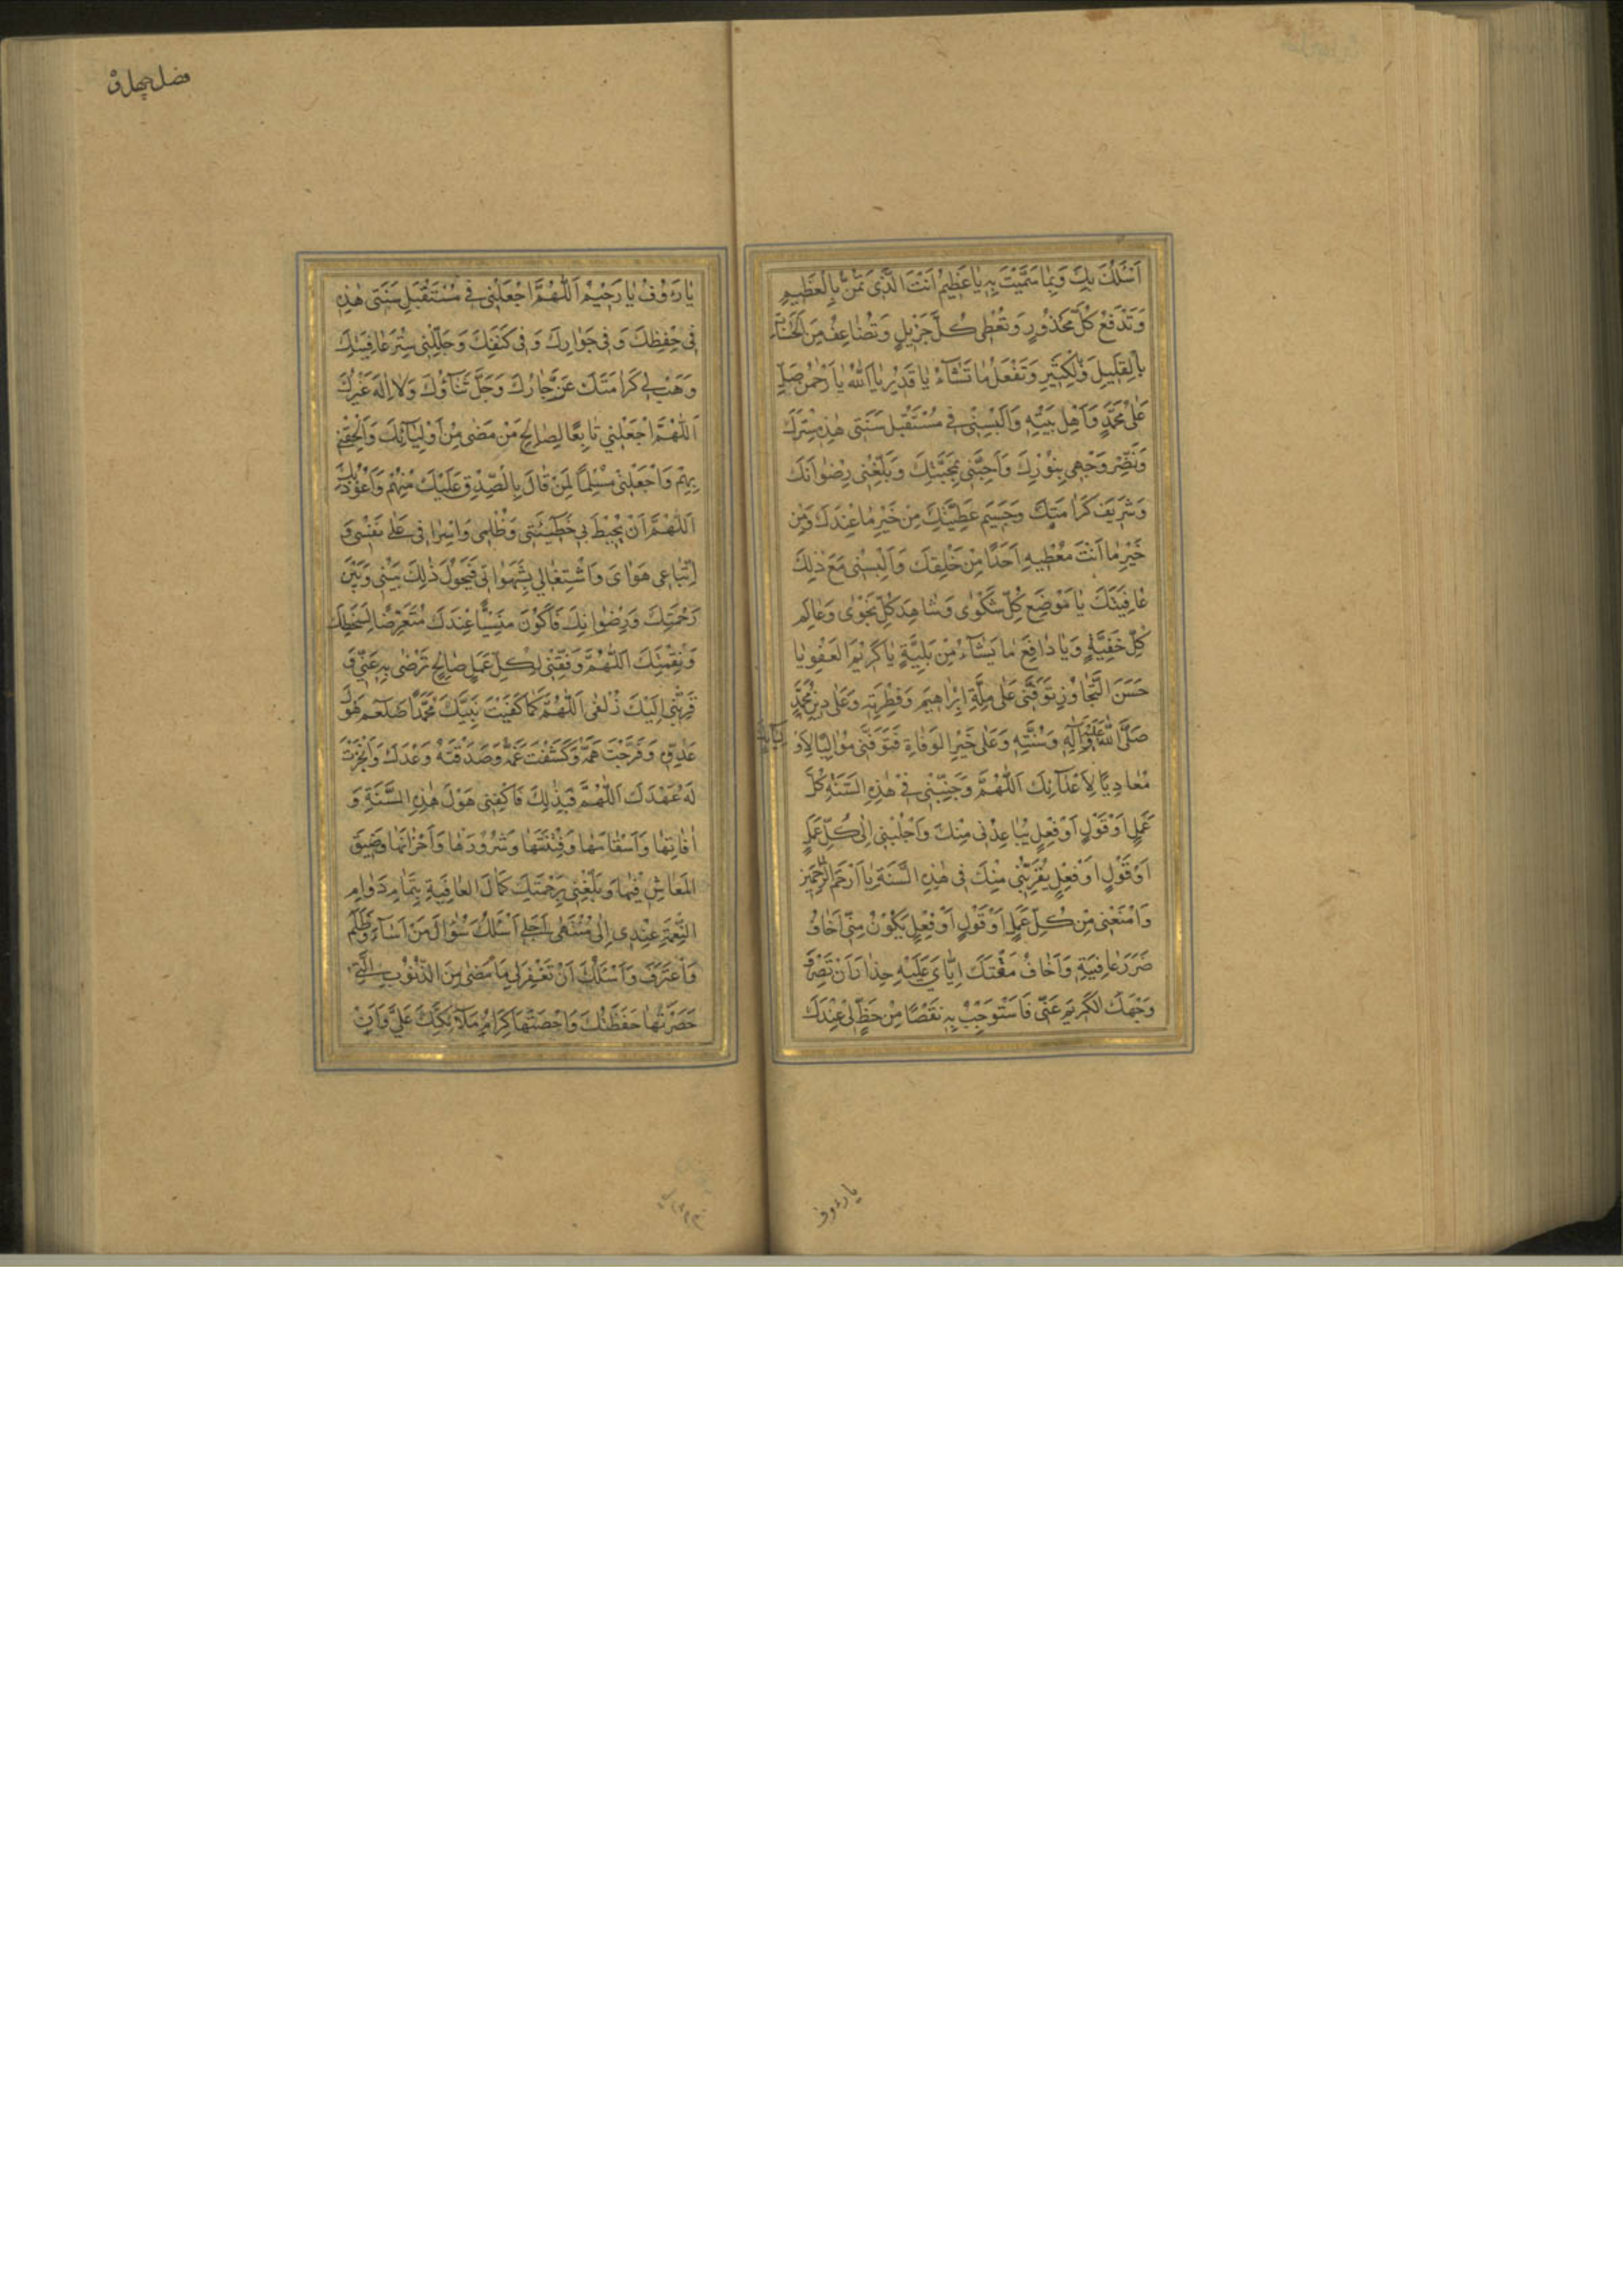 اَسْئَلُكَ بِكَ وَبِمٰا سَمَّيْتَ بِهِ يٰا عَظِيْمُ اَنْتَ الَّذِى تَمُنُّ بِالْعَظِيمِ
وَتَدْفَعُ كُلَّ مَحْذُورٍ وَتُعْطِى كُلَّ جَزِيْلٍ وَتُضٰاعِفُ مِنَ الْحَسَنٰاتِ
بِالْقَلِيلِ وَالْكَثِيرِ وَتَفْعَلُ مٰا تَشٰآءُ يٰا قَدِيْرُ يٰا اَللّٰهُ يٰا رَحْمٰنُ صَلِّ
عَلٰى مُحَمَّدٍ وَاَهْلِ بَيْتِهِ وَاَلْبِسْنِى فِى مُسْتَقْبِلِ سَنَتِى هٰذِهِ سِتْرَكَ
وَنَضِّرْ وَجْهِى بِنُوْرِكَ وَاَحِبَّنِى بِمَحَبَّتِكَ وَبَلِّغْنِى رِضْوٰانَكَ
وَشَرِيفَ كَرٰامَتِكَ وَجَسِيمَ عَطِيَّتِكَ مِنْ خَيْرِ مٰا عِنْدَكَ وَمِنْ
خَيْرِ مٰا اَنْتَ مُعْطِيهِ اَحَدًا مِنْ خَلْقِكَ وَاَلْبِسْنِى مَعَ ذٰلِكَ
عٰافِيَتَكَ يٰا مَوْضِعَ كُلِّ شَكْوٰى وَشٰاهِدَ كُلِّ نَجْوٰى وَعٰالِمَ
كُلِّ خَفِيَّةٍ وَيٰا دٰافِعَ مٰا يَشٰآءُ مِنْ بَلِيَّةٍ يٰا كَرِيْمَ الْعَفْوِ يٰا
حَسَنَ التَّجٰاوُزِ تَوَفَّنِى عَلٰى مِلَّةِ اِبْرٰاهِيمَ وَفِطْرَتِهِ وَعَلٰى دِينِ مُحَمَّدٍ
صَلَّى اللّٰهُ عَلَيْهِ وَآلِهِ وَسُنَّتِهِ وَعَلٰى خَيْرِ الْوَفٰاةِ فَتَوَفَّنِى مُوٰالِيًا لِاَوْلِيٰآئِكَ
مُعٰادِيًا لِاَعْدٰآئِكَ اَللّٰهُمَّ وَجَنِّبْنِى فِى هٰذِهِ السَّنَةِ كُلَّ
عَمَلٍ اَوْ قَوْلٍ اَوْ فِعْلٍ يُبٰاعِدُنِى مِنْكَ وَاجْلُبْنِى اِلٰى كُلِّ عَمَلٍ
اَوْ قَوْلٍ اَوْ فِعْلٍ يُقَرِّبُنِى مِنْكَ فِى هٰذِهِ السَّنَةِ يٰا اَرْحَمَ الرّٰحِمِينَ
وَامْنَعْنِى مِنْ كُلِّ عَمَلٍ اَوْ قَوْلٍ اَوْ فِعْلٍ يَكُوْنُ مِنِّى اَخٰافُ
ضَرَرَ عٰاقِبَتِهِ وَاَخٰافُ مَقْتَكَ اِيّٰاىَ عَلَيْهِ حِذٰارَ اَنْ تَصْرِفَ
وَجْهَكَ الْكَرِيمَ عَنِّى فَاَسْتَوْجِبُ بِهِ نَقْصًا مِنْ حَظٍّ لِى عِنْدَكَ
يا رءوف
يٰا رَءُوْفُ يٰا رَحِيْمُ اَللّٰهُمَّ اجْعَلْنِى فِى مُسْتَقْبَلِ سَنَتِى هٰذِهِ
فِى حِفْظِكَ وَفِى جِوٰارِكَ وَفِى كَنَفِكَ وَجَلِّلْنِى سِتْرَ عٰافِيَتِكَ
وَهَبْ لِى كَرٰامَتَكَ عَزَّ جٰارُكَ وَجَلَّ ثَنٰآؤُكَ وَلٰا اِلٰهَ غَيْرُكَ
اَللّٰهُمَّ اجْعَلْنِي تٰابِعًا لِصٰالِحِ مَنْ مَضٰى مِنْ اَوْلِيٰآئِكَ وَاَلْحِقْنِى
بِهِمْ وَاجْعَلْنِى مُسْلِمًا لِمَنْ قٰالَ بِالصِّدْقِ عَلَيْكَ مِنْهُمْ وَاَعُوْذُ بِكَ
اَللّٰهُمَّ اَنْ يُحِيْطَ بِى خَطِيْئَتِى وَظُلْمِى وَاِسْرٰافِى عَلٰى نَفْسِى وَ
اِتِّبٰاعِى هَوٰاىَ وَاشْتِغٰالِى بِشَهَوٰاتِى فَيَحُوْلُ ذٰلِكَ بَيْنِى وَبَيْنَ
رَحْمَتِكَ وَرِضْوٰانِكَ فَاَكُوْنَ مَنْسِيًّا عِنْدَكَ مُتَعَرِّضًا لِسَخَطِكَ
وَنِقْمَتِكَ اَللّٰهُمَّ وَفِّقْنِى لِكُلِّ عَمَلٍ صٰالِحٍ تَرْضٰى بِهِ عَنِّى وَ
قَرِّبْنِى اِلَيْكَ زُلْفٰى اَللّٰهُمَّ كَمٰا كَفَيْتَ نَبِيَّكَ مُحَمَّدًا صَلعَم هَوْلَ
عَدُوِّهِ وَفَرَّجْتَ هَمَّهُ وَكَشَفْتَ غَمَّهُ وَصَدَقْتَهُ وَعْدَكَ وَاَنْجَزْتَ
لَهُ عَهْدَكَ اَللّٰهُمَّ فَبِذٰلِكَ فَاكْفِنِى هَوْلَ هٰذِهِ السَّنَةِ وَ
اٰفٰاتِهٰا وَاَسْقٰامَهٰا وَفِتْنَتَهٰا وَشُرُوْرَهٰا وَاَحْزٰانَهٰا وَضِيقَ
الْمَعٰاشِ فِيْهٰا وَبَلِّغْنِى بِرَحْمَتِكَ كَمٰالَ الْعٰافِيَةِ بِتَمٰامِ دَوٰامِ
النِّعْمَةِ عِنْدِى اِلٰى مُنْتَهٰى اَجَلِى اَسْئَلُكَ سُؤٰالَ مَنْ اَسٰآءَ وَظَلَمَ
وَاعْتَرَفَ وَاَسْئَلُكَ اَنْ تَغْفِرَ لِى مٰا مَضٰى مِنَ الذُّنُوْبِ الَّتِى
حَصَرَتْهٰا حَفَظَتُكَ وَاَحْصَتْهٰا كِرٰامُ مَلٰآئِكَتِكَ عَلَىَّ وَاَنْ